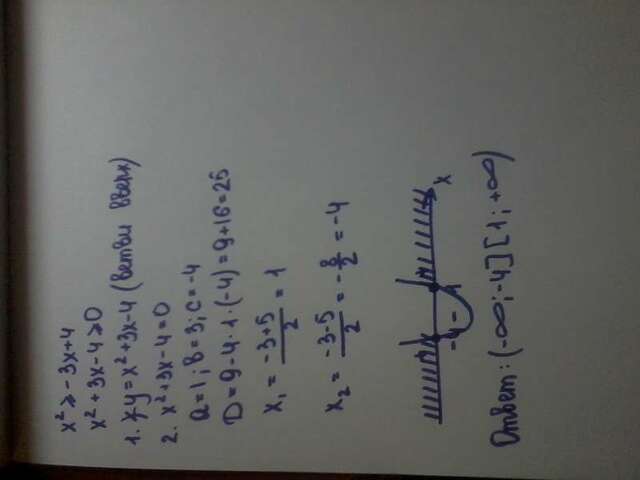 x² ≥ -3x+4
x²+3x-4≥0
1. y=x²+3x-4 (ветви вверх)
2. x²+3x-4=0
a=1; в=3; c=-4
D=9-4·1·(-4)=9+16=25
x₁ = (-3+5)/2 = 1
x₂ = (-3-5)/2 = -8/2 = -4
-4 1 x
Ответ: (-∞; -4] [1; +∞)